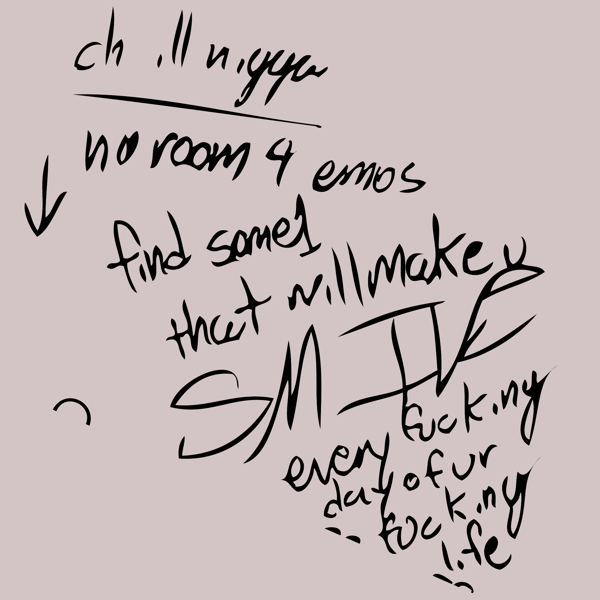 chill nigga
no room 4 emos
find some1
that will make u
SMILE
every fucking
day of ur
fucking
life